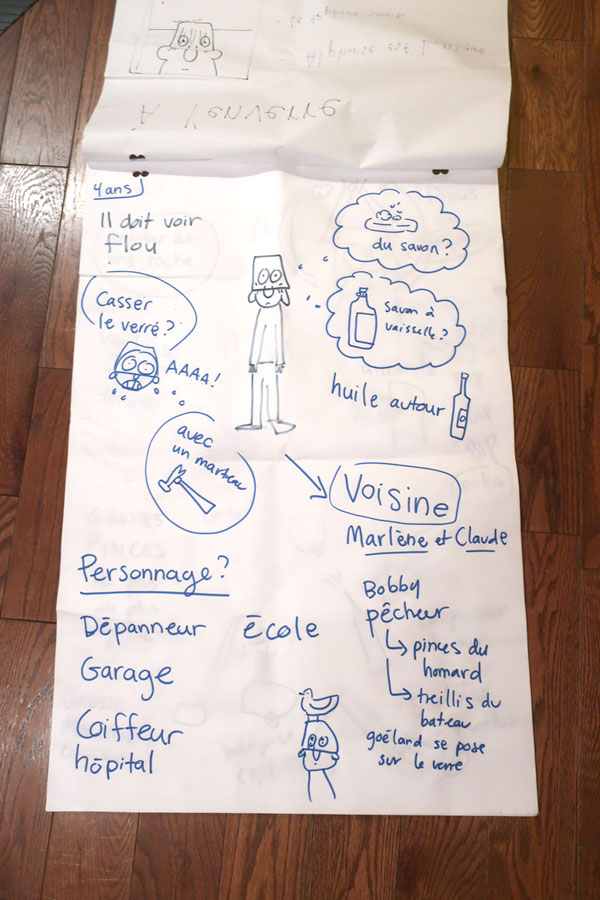 - Le téléphone sonne
- Alphonse est
À l'enverre
4 ans
Il doit voir
flou
Casser
le verre?
AAAA!
avec
un marteau
du savon?
Savon à
vaisselle?
huile autour
Voisine
Marlène et Claude
Personnage?
Dépanneur
école
Garage
Coiffeur
hôpital
Bobby
pêcheur
pinces du
homard
treillis du
bateau
goéland se pose
sur le verre